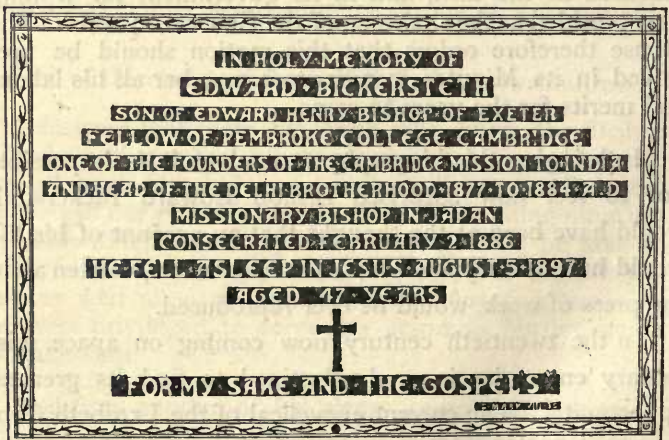 IN·HOLY·MEMORY·OF
EDWARD·BICKERSTETH
SON·OF·EDWARD·HENRY·BISHOP·OF·EXETER
FELLOW·OF·PEMBROKE·COLLEGE·CAMBRIDGE
ONE·OF·THE·FOUNDERS·OF·THE·CAMBRIDGE·MISSION·TO·INDIA
AND·HEAD·OF·THE·DELHI·BROTHERHOOD·1877·TO·1884·A·D·
MISSIONARY·BISHOP·IN·JAPAN
CONSECRATED·FEBRUARY·2·1886
HE·FELL·ASLEEP·IN·JESUS·AUGUST·5·1897
AGED·47·YEARS
FOR·MY·SAKE·AND·THE·GOSPEL'S